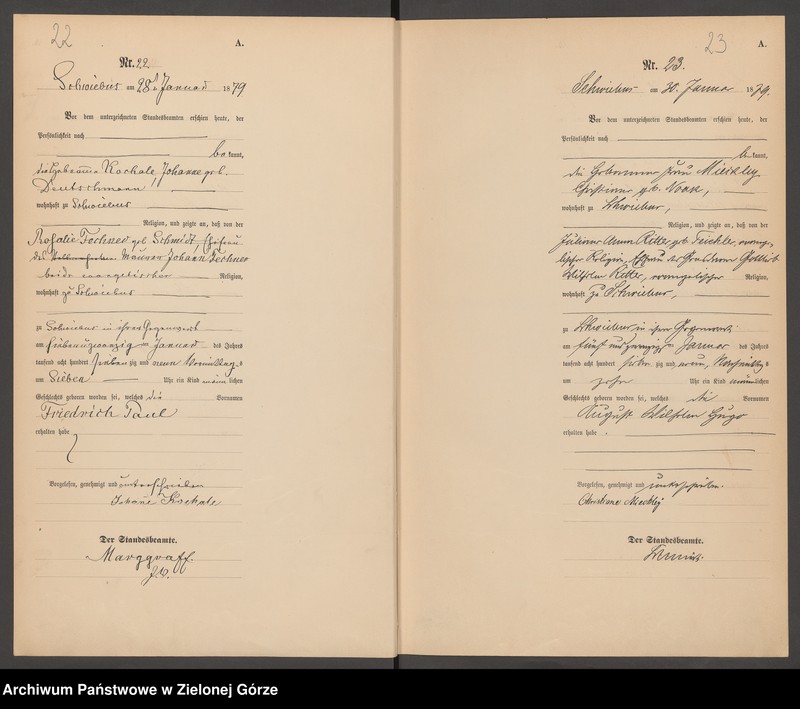 22
A.
Nr. 22
Schwiebus am 28t Januar 1879
Vor dem unterzeichneten Standesbeamten erschien heute, der
Persönlichkeit nach
bekannt,
die Hebamme Kochale, Johanne geb.
Deutschmann
wohnhaft zu Schwiebus
Religion, und zeigte an, daß von der
Rosalie Fechner geb Schmidt, Ehefrau
des Maurer Johann Fechner
beide evangelischer Religion,
wohnhaft zu Schwiebus
zu Schwiebus in ihrer Gegenwart
am siebenundzwanzig Januar des Jahres
tausend acht hundert siebenzig und neun Vormittags
um Sieben Uhr ein Kind männlichen
Geschlechts geboren worden sei, welches die Vornamen
Friedrich Paul
erhalten habe
Vorgelesen, genehmigt und unterschrieben
Johane Kochale
Der Standesbeamte.
Marggraff.
23
A.
Nr. 23.
Schwiebus am 30. Januar 1879.
Vor dem unterzeichneten Standesbeamten erschien heute, der
Persönlichkeit nach
bekannt,
die Hebamme Frau Mieckley,
Christiane geb. Noack,
wohnhaft zu Schwiebus,
Religion, und zeigte an, daß von der
Juliane Anna Ritter, geb. evange-
lischer Religion, Ehefrau des Gottlieb
Wilhelm Ritter, evangelischer Religion,
wohnhaft zu Schwiebus,
zu Schwiebus in ihrer Gegenwart
am fünf und zwanzig Januar des Jahres
tausend acht hundert siebenzig und neun, Nachmittags
um zehn Uhr ein Kind männlichen
Geschlechts geboren worden sei, welches die Vornamen
August Wilhelm Hugo
erhalten habe.
Vorgelesen, genehmigt und unterschrieben.
Christiane Mieckley
Der Standesbeamte.
Archiwum Państwowe w Zielonej Górze